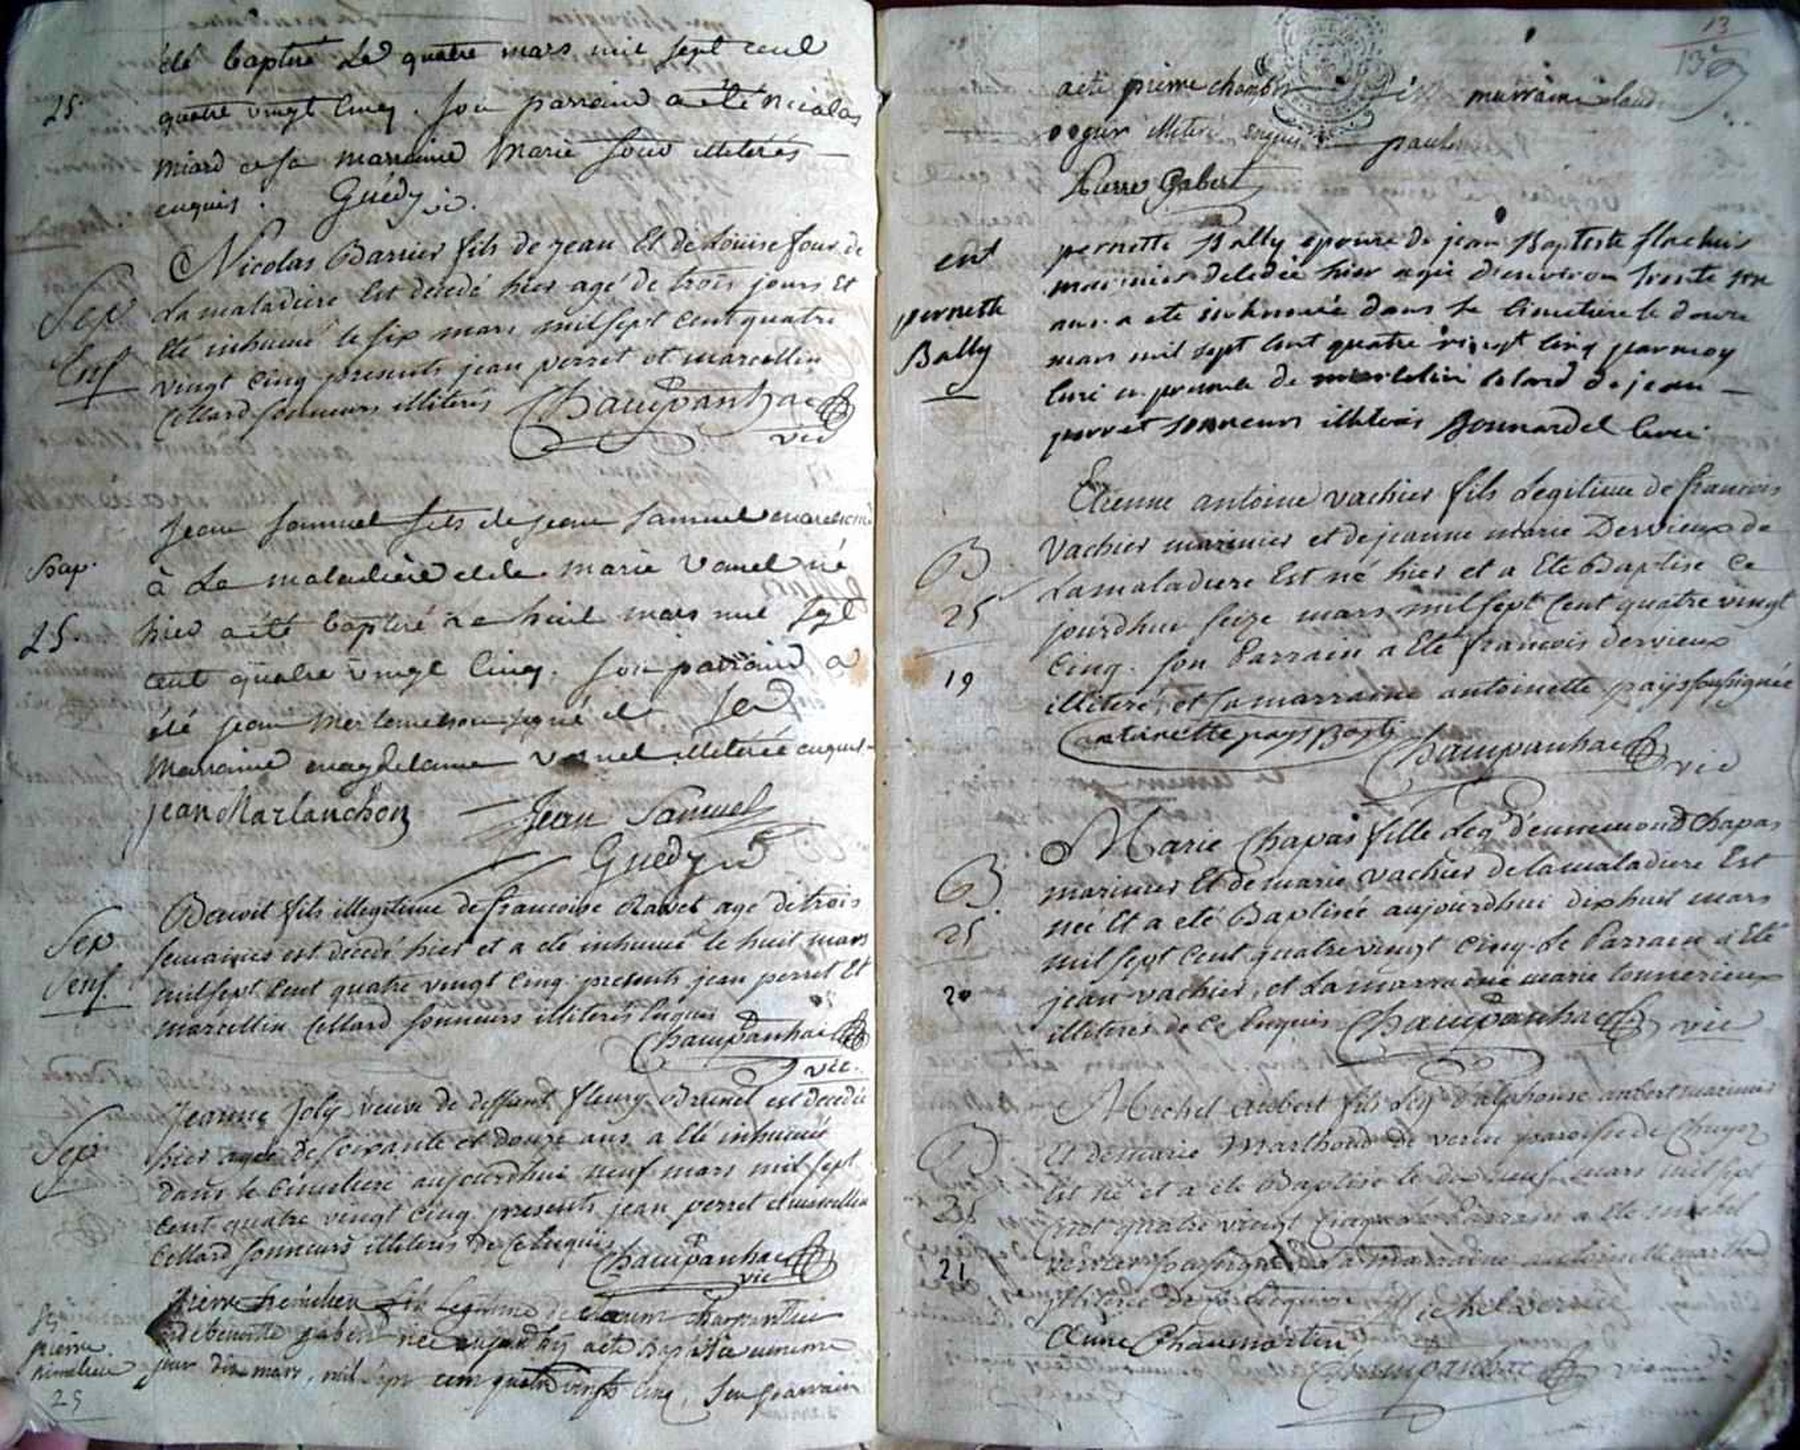 été baptisé Le quatre mars mil sept cent
25.
quatre vingt cinq. Son parrain a été nicolas
miard et sa marraine Marie four illiterés
enquis. Guédy vic.
Nicolas Barrier fils de jean Et de Louise four de
Sep
Enf
La maladiere Est decedé hier agé de trois jours Et
Eté inhumé le six mars mil sept cent quatre
vingt cinq presents jean perret et marcellin
Cellard sonneurs illiterés Champanhac
vic
Jean Samuel fils de jean Samuel
Bap.
à La maladiere et de marie vanel né
25.
hier a été baptisé Le huit mars mil sept
cent quatre vingt cinq. Son parrain a
été jean signé et Sa
Marraine magdelaine vanel illiterée enquis
jean Marlanchon Jean Samuel
Guedy vic
Benoit fils illegitime de francoise Ravet agé de trois
Sep
Enf.
semaines est decedé hier et a eté inhumé le huit mars
mil sept Cent quatre vingt cinq presents jean perret Et
marcellin Cellard sonneurs illiterés Enquis
Champanhac
vic.
Jeanne Joly veuve de deffunt fleury Brunel est decedée
Sep
hier agée de soixante et douze ans a Eté inhumée
dans le Cimetiere aujourdhui neuf mars mil sept
Cent quatre vingt cinq presents jean perret et marcellin
Cellard sonneurs illiterés de Ce Enquis Champanhac
vic
pierre
25
pierre fils Legitime de
gabert né a été Baptisé
jour dix mars, mil sept cent quatre vingt cinq, Son parrain
13
13
a été pierre marraine
illiteré enquis
Pierre Gabert
ent
pernette
Bally
pernette Bally epouse de jean Baptiste
marinier decedée hier agée d'environ trente
ans a eté inhumée dans le Cimetiere le douze
mars mil sept Cent quatre vingt Cinq par moy
Curé en presence de marcelin Celard de jean
perret sonneurs illiterés Bonnardel Curé
Etienne antoine vachier fils Legitime de francois
B
25
19
vachier marinier et de jeanne marie Dervieux de
La maladiere Est né hier et a Eté Baptisé Ce
jourdhui seize mars mil sept Cent quatre vingt
Cinq. Son Parrain a Eté francois dervieux
illiteré, et sa marraine antoinette pays soussignée
antoinette pays
Champanhac vic
Marie Chapas fille Leg. d'ennemond Chapas
B
25
20
marinier Et de marie vachier de la maladiere Est
née Et a eté Baptisée aujourdhui dixhuit mars
mil sept Cent quatre vingt Cinq. Le Parrain a Eté
jean vachier, et La marraine marie tonnerieux
illiterés de Ce Enquis Champanhac vic
Michel aubert fils Leg. d'alphonse aubert marinier
B
25
21
Et de marie Marthoud de verin paroisse de Chuyer
Est né et a eté Baptisé le dix neuf mars mil sept
Cent quatre vingt Cinq Le Parrain a Eté michel
verrier soussigné La marraine antoinette
illiterée de ce Enquise Michel
Chaumartin
Champanhac vic